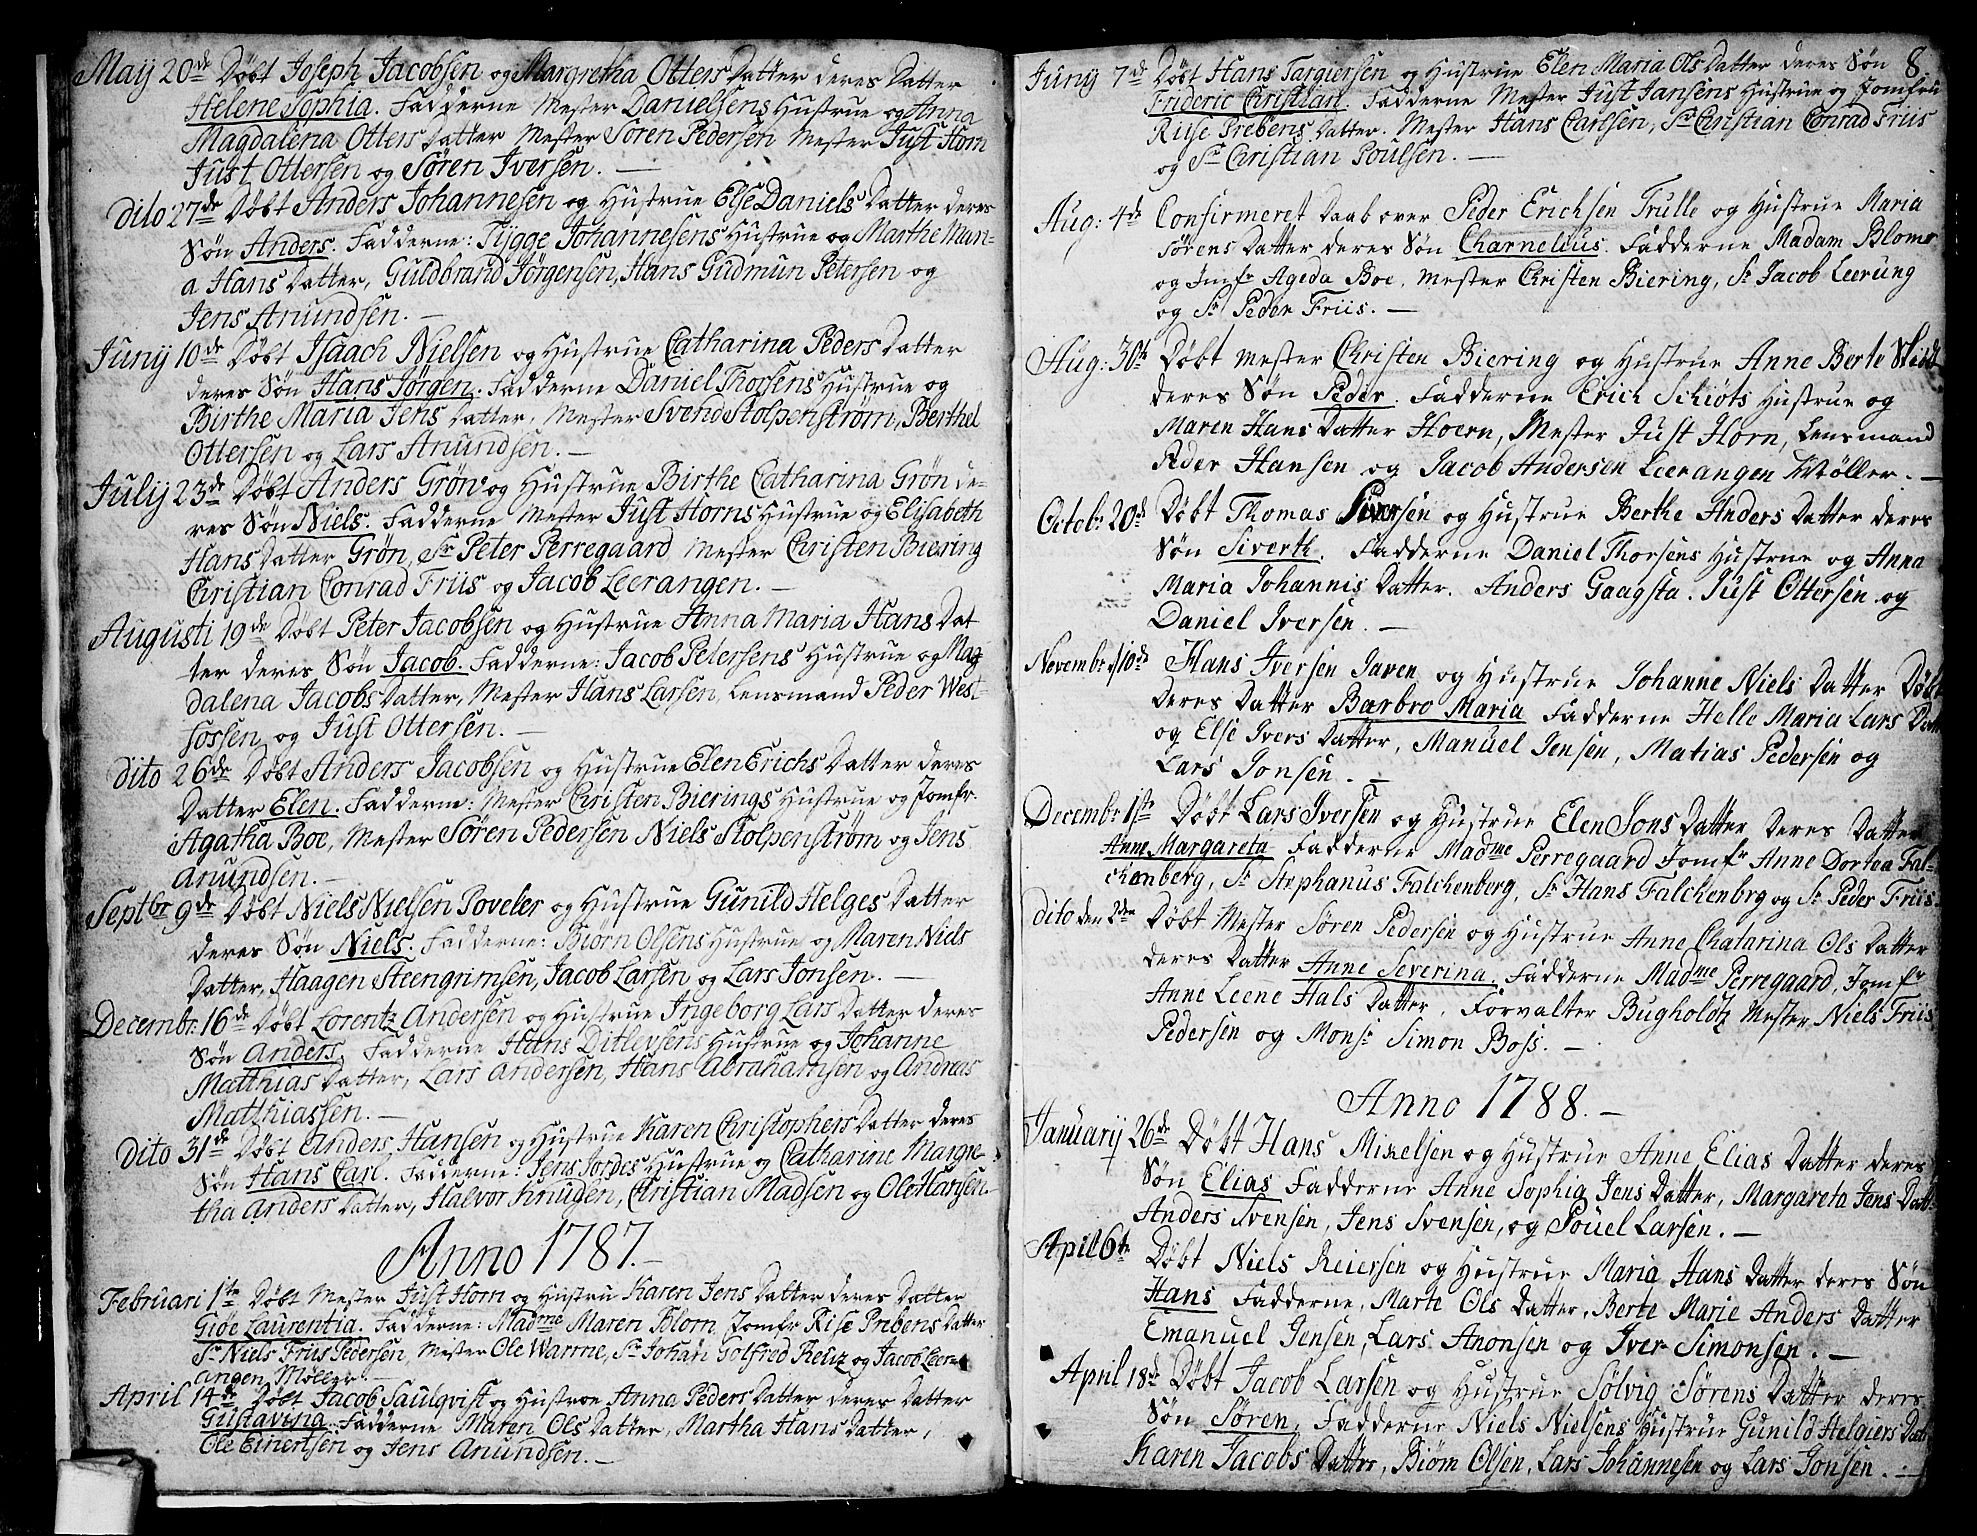 Maij 20de Døbt Joseph Jacobsen og Margretha Otters Datter deres Datter
Helene Sophia. Fadderne Mester Danielsens Hustrue og Anna
Magdalena Otters Datter Mester Sören Pedersen Mester Just Horn
Just Ottersen og Søren Iversen. —
dito 27de Døbt Anders Johannesen og Hustrue Else Daniels Datter deres
Søn Anders. Fadderne: Tÿgge Johannesens Hustrue og Marthe Mari-
a Hans Datter, Guldbrand Jörgensen, Hans Gudmun Petersen og
Jens Anundsen. —
Junÿ 10de Døbt Isaach Nielsen og Hustrue Catharina Peders Datter
deres Søn Hans Jörgen. Fadderne Daniel Thorsens Hustrue og
Birthe Maria Jens Datter, Mester Svend Stolpenstrøm, Berthel
Ottersen og Lars Anundsen. —
Julÿ 23de Døbt Anders Grön og Hustrue Birthe Catharina Grön de-
res Søn Niels. Fadderne Mester Just Horns Hustrue og Elisabeth
Hans Datter Grön, Sr Peter Perregaard Mester Christen Biering
Christian Conrad Friis og Jacob Leerangen. —
Augusti 19de Døbt Peter Jacobsen og Hustrue Anna Maria Hans Dat
ter deres Søn Jacob. Fadderne: Jacob Petersens Hustrue og Mag
dalena Jacobs Datter, Mester Hans Larsen, Lensmand Peder West-
fossen og Just Ottersen. —
dito 26de Døbt Anders Jacobsen og Hustrue Elen Erichs Datter deres
Datter Elen. Fadderne: Mester Christen Bierings Hustrue og Jomfr.
Agatha Boe, Mester Søren Pedersen Niels Stolpenstrøm og Jens
Anundsen. —
Septbr 9de Døbt Niels Nielsen Poveler og Hustrue Gunild Helges Datter
deres Søn Niels. Fadderne: Biörn Olsens Hustrue og Maren Niels
Datter, Haagen Steengrimsen, Jacob Larsen og Lars Jonsen. —
Decembr: 16de Døbt Lorentz Andersen og Hustrue Ingeborg Lars Datter deres
Søn Anders. Fadderne Hans Ditlevsens Hustrue og Johanne
Matthias Datter, Lars Andersen, Hans Abrahamsen og Andreas
Matthiassen. —
dito 31de Døbt Anders Hansen og Hustrue Karen Christophers Datter deres
Søn Hans Carl. Fadderne: Jens Jordes Hustrue og Catharine Margre-
tha Anders Datter, Halvor Knudsen, Christian Madsen og Ole Hansen.
Anno 1787. —
Februari 1te Døbt Mester Just Horn og Hustru Karen Jens Datter deres Datter
Giöe Laurentia. Fadderne: Madme Maren Blom, Jomfr Rise Prebens Datter
Sr Niels Friis Pedersen, Mester Ole Warme, Sr Johan Gotfred Reuz og Jacob Leer-
angen Möller. —
April 14de Døbt Jacob Saulqvist og Hustroe Anna Peders Datter deres Datter
Gustavina. Fadderne Maren Ols Datter, Martha Hans Datter,
Ole Einertsen og Jens Anundsen. —
8
Junÿ 7de Døbt Hans Targiersen og Hustrue Elen Maria Ols Datter deres Søn
Frideric Christian. Fadderne Mester Just Jansens Hustrue og Jomfru
Riise Prebens Datter. Mester Hans Carlsen, Sr Christian Conrad Friis
og Sr Christian Poulsen. —
Aug: 4de Confirmeret Daab over Peder Erichsen Trulle og Hustrue Maria
Sørens Datter deres Søn Charnelius. Fadderne Madam Bloms
og Jmfr Ageda Boe, Mester Christen Biering, Sr Jacob Leerung
og Sr Peder Friis. —
Aug: 30te Døbt Mester Christen Biering og Hustrue Anne Berte
deres Søn Peder. Fadderne Erich Schiöts Hustrue og
Maren Hans Datter Hoern, Mester Just Horn, Lensmand
Peder Hansen og Jacob Andersen Leerangen Møller. —
Octobr 20de Døbt Thomas Siversen og Hustrue Berthe Anders Datter deres
Søn Siverth. Fadderne Daniel Thorsens Hustrue og Anna
Maria Johannis Datter. Anders Gaagsta. Just Ottersen og
Daniel Iversen. —
Novembr. 10de Hans Iversen Jaren og Hustrue Johanne Niels Datter Døbt
deres Datter Barbro Maria Fadderne Helle Maria Lars Datter
og Else Ivers Datter, Manuel Jensen, Matias Pedersen og
Lars Jonsen. —
Decembr 1ste Døbt Lars Iversen og Hustrue Elen Jons Datter deres Datter
Anne Margareta Fadderne Madme Perregaard Jomfr Anne Dortea Fal-
chenberg, Sr Stephanus Falchenberg, Sr Hans Falchenbrg og Sr Peder Friis.
dito den 2den Døbt Mester Søren Pedersen og Hustrue Anne Chatarina Ols Datter
deres Datter Anne Severina. Fadderne Madme Perregaard, Jomfr
Anne Leene Hals Datter, Forvalter Bugholdtz Mester Niels Friis
Pedersen og Monsr Simon Boss. —
Anno 1788. —
Januarij 26de Døbt Hans Mixelsen og Hustrue Anne Elias Datter deres
Søn Elias Fadderne Anne Sophia Jens Datter, Margareta Jens Datter
Anders Svensen, Jens Svensen, og Pouel Larsen. —
April 6te Døbt Niels Reiersen og Hustrue Maria Hans Datter deres Søn
Hans Fadderne, Marte Ols Datter, Berte Marie Anders Datter
Emanuel Jensen, Lars Anonsen og Iver Simonsen. —
April 18de Døbt Jacob Larsen og Hustrue Sølvig Sørens Datter deres
Søn Søren. Fadderne Niels Nielsens Hustrue Gunild Helgiers Datt
Karen Jacobs Datter, Biørn Olsen, Lars Johannesen og Lars Jonsen. —